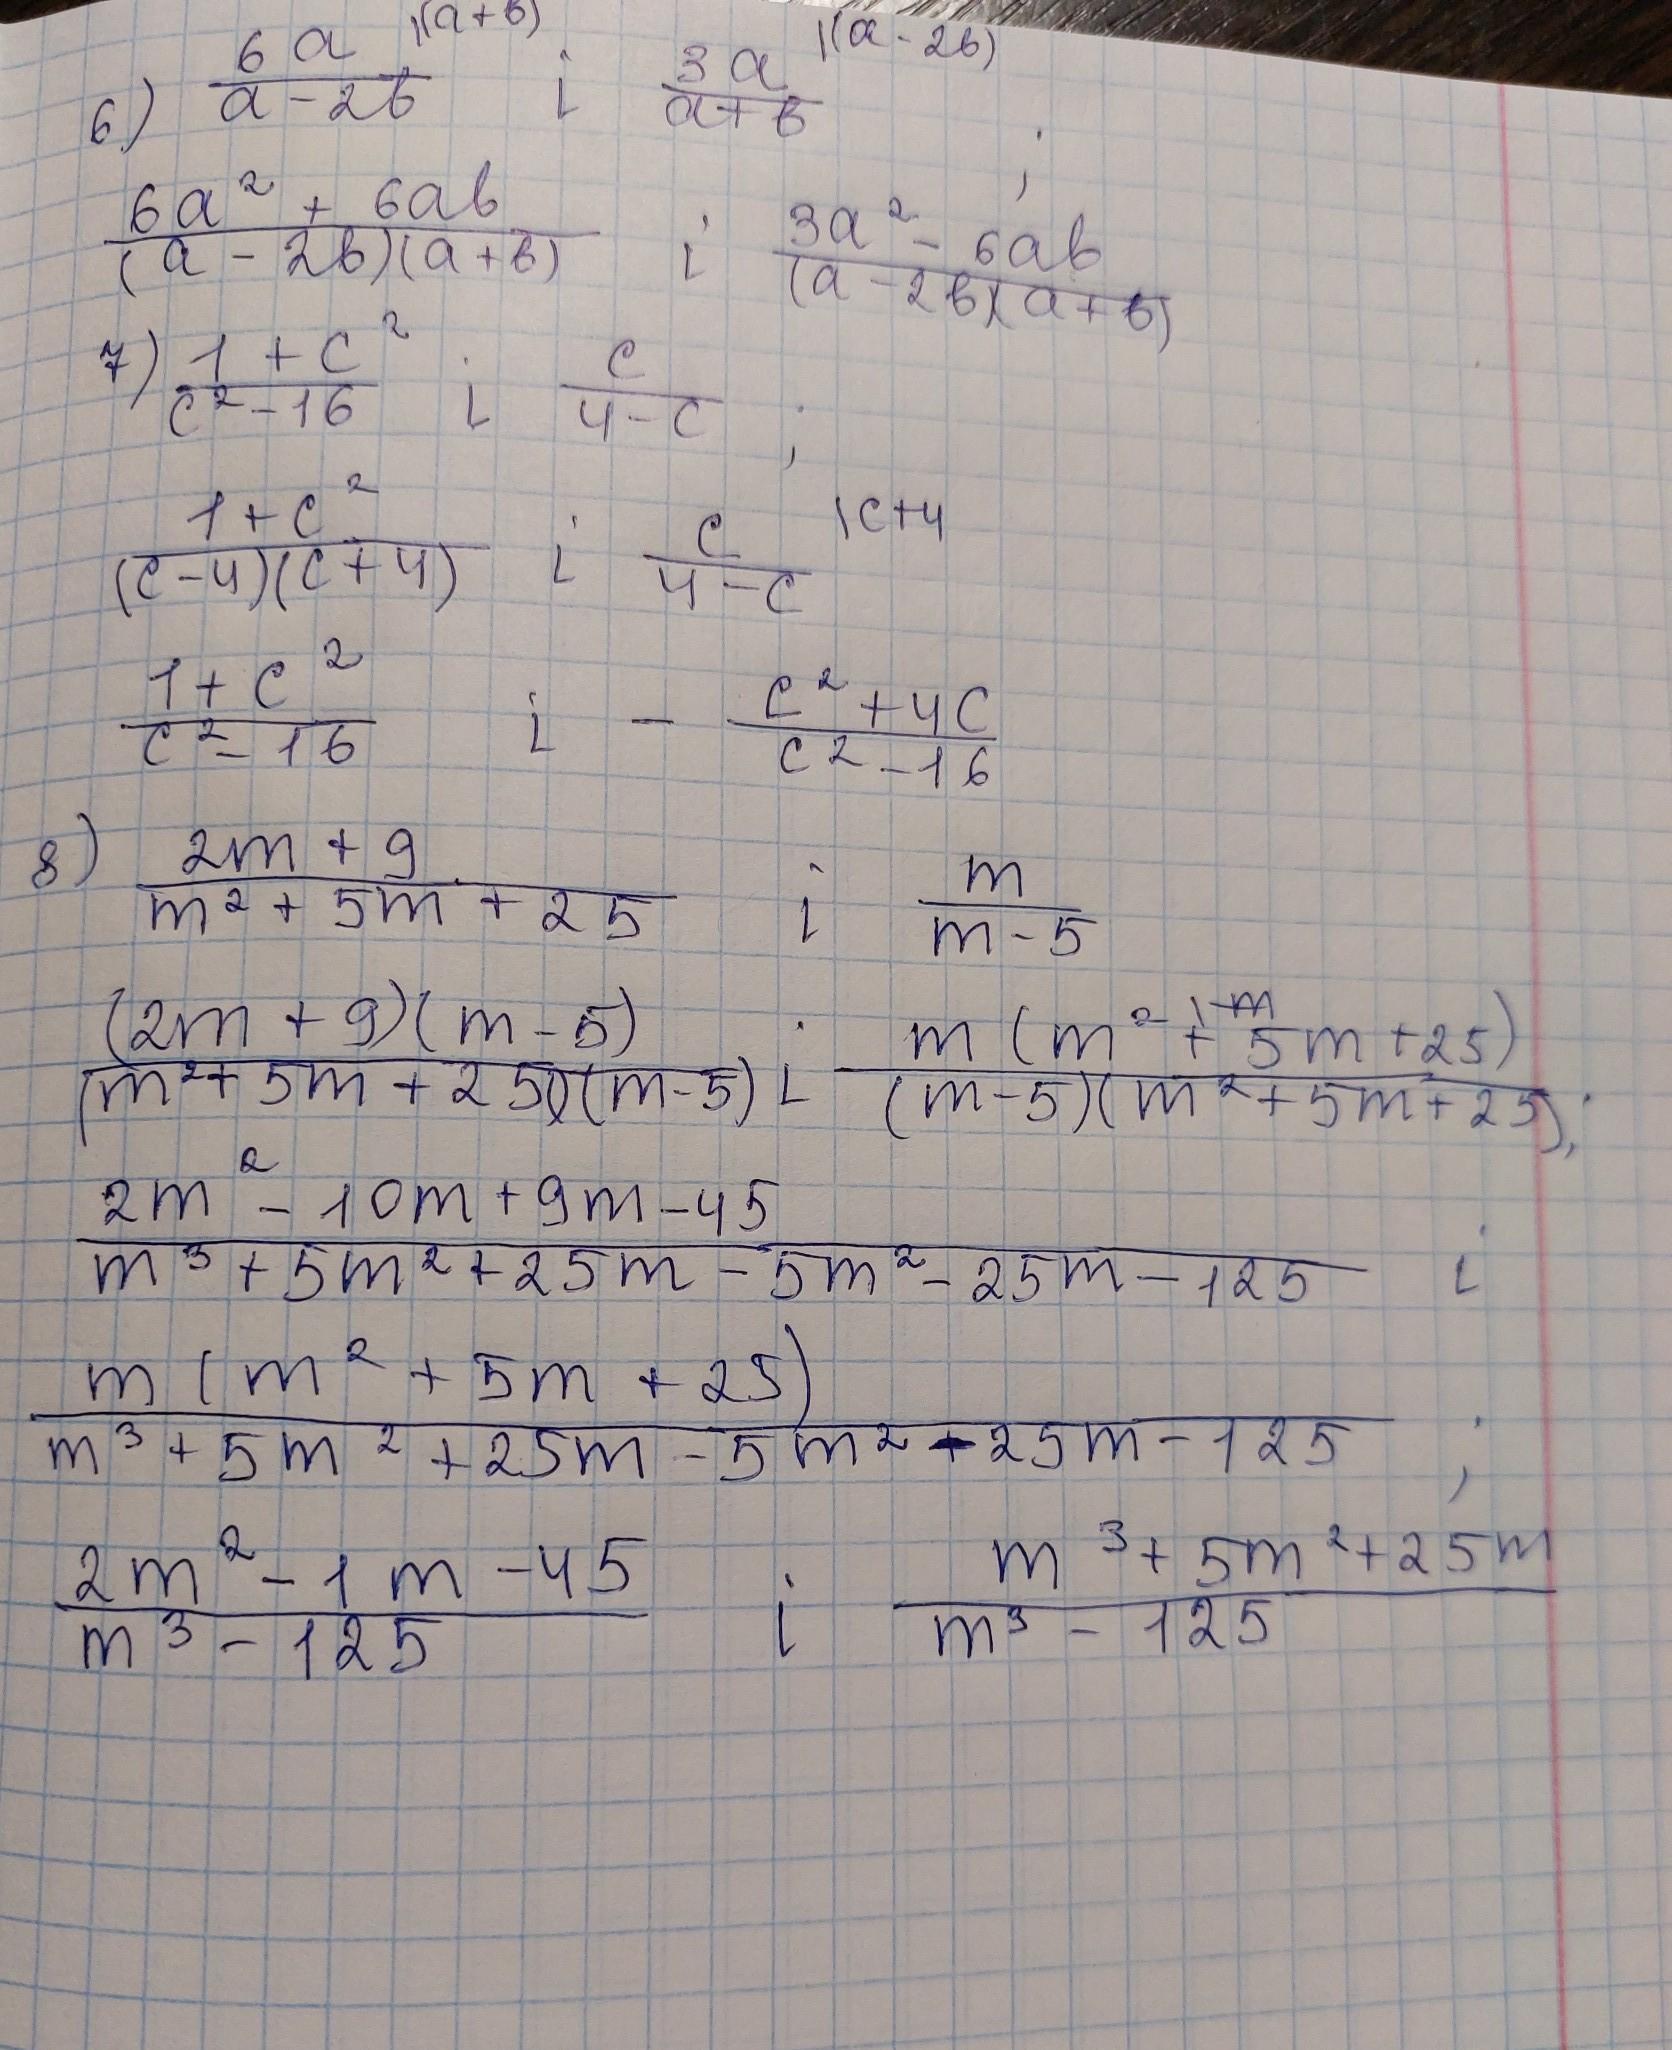 6) 6a/(a-2b) |(a+b) i 3a/(a+b) |(a-2b) ;
(6a² + 6ab)/((a-2b)(a+b)) i (3a² - 6ab)/((a-2b)(a+b))
7) (1+c²)/(c²-16) i c/(4-c) ;
(1+c²)/((c-4)(c+4)) i c/(4-c) |c+4
(1+c²)/(c²-16) i - (c²+4c)/(c²-16)
8) (2m+9)/(m²+5m+25) i m/(m-5)
((2m+9)(m-5))/((m²+5m+25)(m-5)) i (m(m²+5m+25))/((m-5)(m²+5m+25)) ;
(2m²-10m+9m-45)/(m³+5m²+25m-5m²-25m-125) i
(m(m²+5m+25))/(m³+5m²+25m-5m²-25m-125) ;
(2m²-1m-45)/(m³-125) i (m³+5m²+25m)/(m³-125)